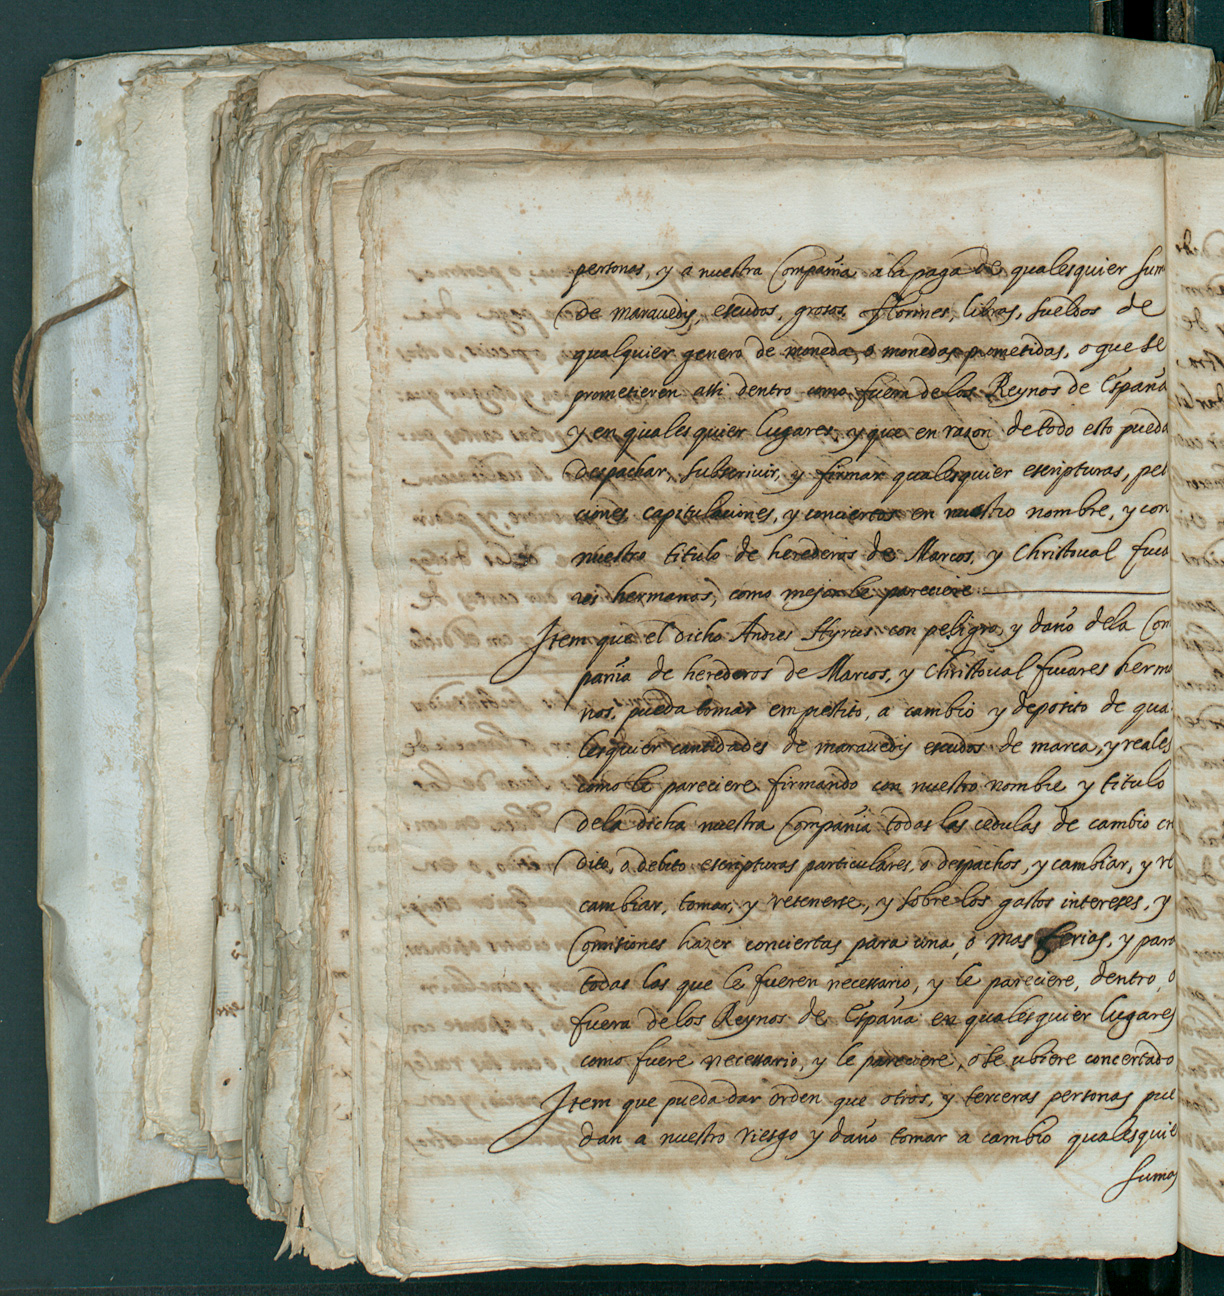 personas, y a nuestra Compañia a la paga de qualesquier sum
de maravedis, escudos, grosos, florines, libras, sueldos de
qualquier genero de moneda, o monedas prometidas, o que se
prometieren assi dentro como fuera de los Reynos de España
y en qualesquier lugares, y que en razon de todo esto pueda
despachar, subscrivir, y firmar qualesquier escripturas, peti
ciones, capitulaciones, y conciertos en nuestro nombre, y con
nuestro titulo de herederos de Marcos, y Christoual fuca
res hermanos, como mejor le pareciere
Item que el dicho Andres Hyrus con peligro, y daño dela Com
pañia de herederos de Marcos, y Christoual fucares herma
nos, pueda tomar emprestito, a cambio y deposito de qua
lesquier cantidades de maravedis escudos de marca, y reales
como le pareciere firmando con nuestro nombre y titulo
dela dicha nuestra Compañia todas las cedulas de cambio cre
dito, o debito escripturas particulares, o despachos, y cambiar, y re
cambiar, tomar, y retenerse, y sobre los gastos intereses, y
Comisiones hazer conciertos para una, o mas ferias, y para
todas las que le fueren necessario, y le pareciere, dentro, o
fuera de los Reynos de España en qualesquier lugares
como fuere necessario, y le pareciere, o se ubiere concertado
Item que pueda dar orden que otros, y terceras personas pue
dan, a nuestro riesgo y daño tomar a cambio qualesquie
sumas